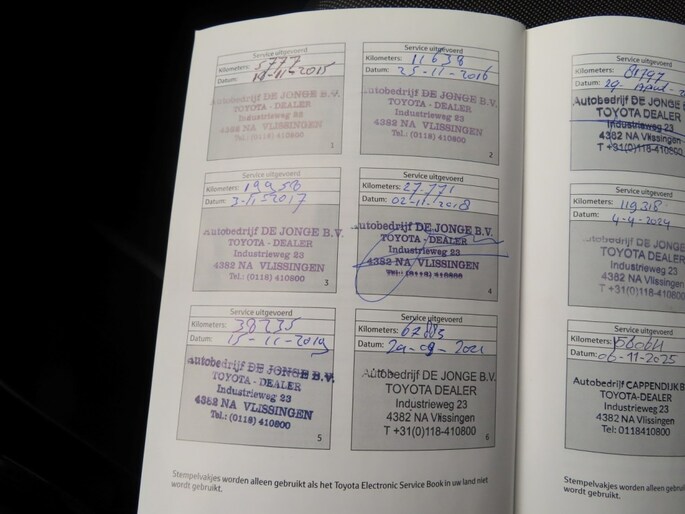 Service uitgevoerd
Kilometers: 5777
Datum: 19-11-2015
Autobedrijf DE JONGE B.V.
TOYOTA - DEALER
Industrieweg 23
4382 NA VLISSINGEN
Tel.: (0118) 410800
1
Service uitgevoerd
Kilometers: 11638
Datum: 25-11-2016
Autobedrijf DE JONGE B.V.
TOYOTA - DEALER
Industrieweg 23
4382 NA VLISSINGEN
Tel.: (0118) 410800
2
Service uitgevoerd
Kilometers: 19958
Datum: 3-11-2017
Autobedrijf DE JONGE B.V.
TOYOTA - DEALER
Industrieweg 23
4382 NA VLISSINGEN
Tel.: (0118) 410800
3
Service uitgevoerd
Kilometers: 27.771
Datum: 02-11-2018
Autobedrijf DE JONGE B.V.
TOYOTA - DEALER
Industrieweg 23
4382 NA VLISSINGEN
Tel.: (0118) 410800
4
Service uitgevoerd
Kilometers: 38235
Datum: 15-11-2019
Autobedrijf DE JONGE B.V.
TOYOTA - DEALER
Industrieweg 23
4382 NA VLISSINGEN
Tel.: (0118) 410800
5
Service uitgevoerd
Kilometers:
Datum: 29-09-2021
Autobedrijf DE JONGE B.V.
TOYOTA DEALER
Industrieweg 23
4382 NA Vlissingen
T +31(0)118-410800
6
Stempelvakjes worden alleen gebruikt als het Toyota Electronic Service Book in uw land niet
wordt gebruikt.
Service
Kilometers: 81797
Datum: 29 April
Autobedrijf DE JONGE
TOYOTA DEALER
Industrieweg 23
4382 NA Vlissingen
T +31(0)118-410800
Service uitgevoerd
Kilometers: 119318
Datum: 4-4-2024
Autobedrijf DE JONGE
TOYOTA DEALER
Industrieweg 23
4382 NA Vlissingen
T +31(0)118-41080
Service uitgevoerd
Kilometers:
Datum: 06-11-2025
Autobedrijf CAPPENDIJK B
TOYOTA DEALER
Industrieweg 23
4382 NA Vlissingen
Tel: 0118410800
Stempelvakjes worden alleen
wordt gebruikt.